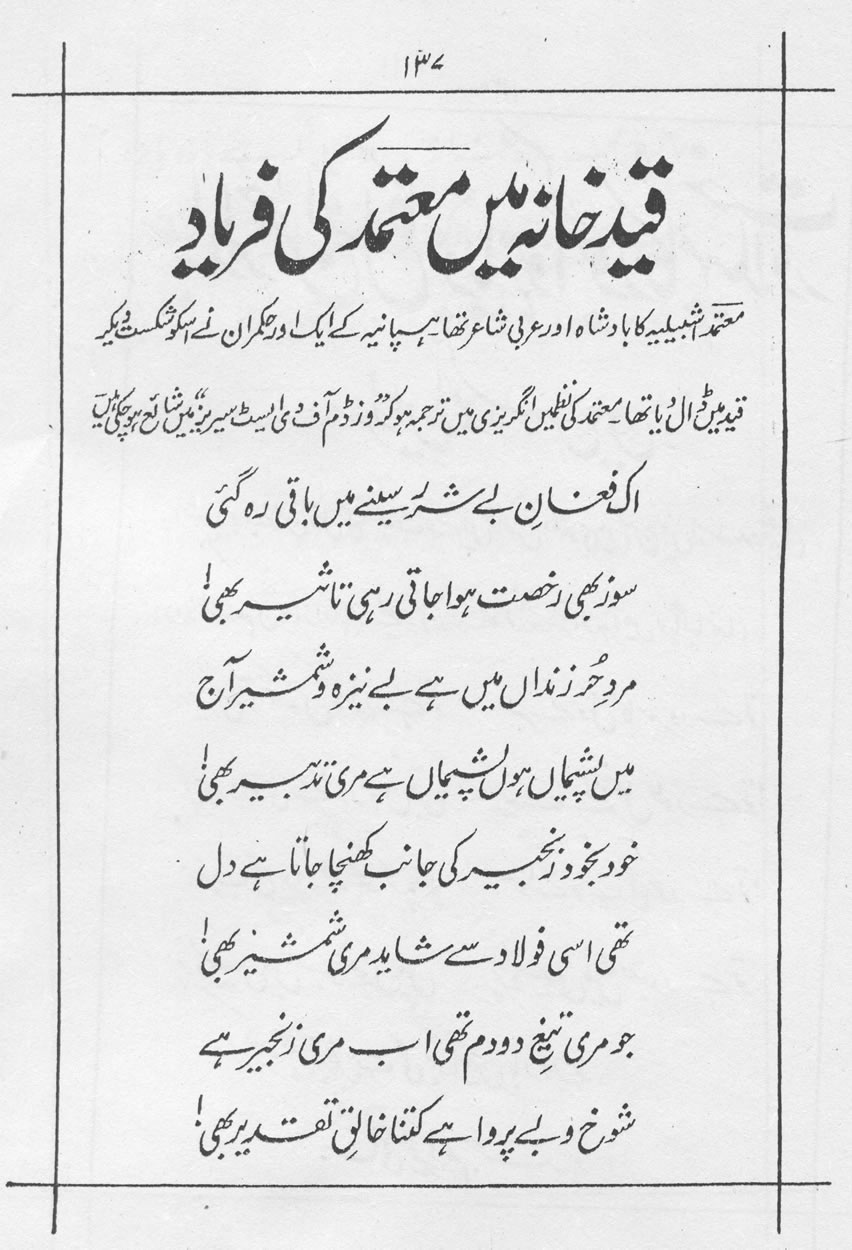 ۱۳۷
قید خانہ میں معتمد کی فریاد
معتمد اشبیلیہ کا بادشاہ اور عربی شاعر تھا۔ ہسپانیہ کے ایک اور حکمران نے اسکو شکست دیکر
قید میں ڈال دیا تھا۔ معتمد کی نظمیں انگریزی میں ترجمہ ہو کر "وزڈم آف دی ایسٹ سیریز" میں شائع ہو چکی ہیں
اک فغانِ بے شرر سینے میں باقی رہ گئی
سوز بھی رخصت ہوا جاتی رہی تاثیر بھی!
مردِ حُر زنداں میں ہے بے نیزہ و شمشیر آج
میں پشیماں ہوں پشیماں ہے مری تدبیر بھی!
خود بخود زنجیر کی جانب کھنچا جاتا ہے دل
تھی اسی فولاد سے شاید مری شمشیر بھی!
جو مری تیغِ دودم تھی اب مری زنجیر ہے
شوخ و بے پروا ہے کتنا خالقِ تقدیر بھی!